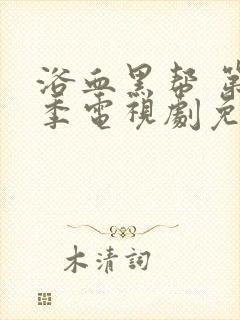 浴血黑帮 第
季電視劇免
木清詞